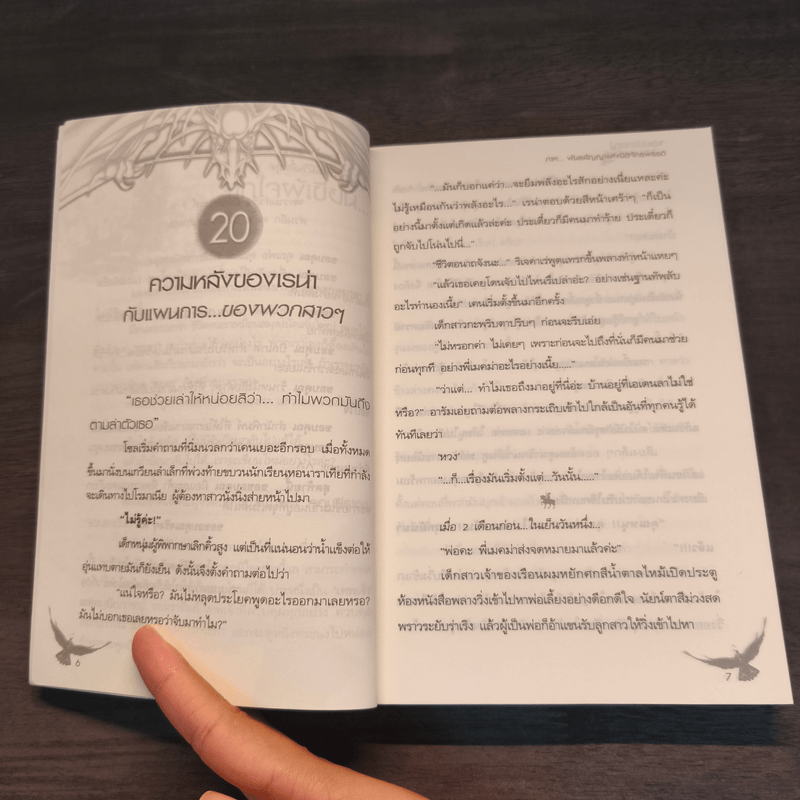 20
ความหลังของเรน่า
กับแผนการ...ของพวกสาวๆ
"เธอช่วยเล่าให้หน่อยสิว่า... ทำไมพวกมันถึง
ตามล่าตัวเธอ"
โซลเริ่มคำถามที่นิ่มนวลกว่าเคนเยอะอีกรอบ เมื่อทั้งหมด
ขึ้นมานั่งบนเกวียนลำเล็กที่พ่วงท้ายขบวนนักเรียนหอนาราเทียที่กำลัง
จะเดินทางไปโรมาเนีย ผู้ต้องหาสาวนั่งนิ่งส่ายหน้าไปมา
"ไม่รู้ค่ะ!"
เด็กหนุ่มผู้พิพากษาเลิกคิ้วสูง แต่เป็นที่แน่นอนว่าน้ำแข็งต่อให้
อุ่นแทบตายมันก็ยังเย็น ดังนั้นจึงตั้งคำถามต่อไปว่า
"แน่ใจหรือ? มันไม่หลุดประโยคพูดอะไรออกมาเลยหรอ?
มันไม่บอกเธอเลยหรอว่าจับมาทำไม?"
6
ภาค...
"...มันก็บอกแค่ว่า...จะยืมพลังอะไรสักอย่างเนี่ยแหละค่ะ
ไม่รู้เหมือนกันว่าพลังอะไร..." เรน่าตอบด้วยสีหน้าเศร้าๆ "ก็เป็น
อย่างนี้มาตั้งแต่เกิดแล้วล่ะค่ะ ประเดี๋ยวก็มีคนมาทำร้าย ประเดี๋ยวก็
ถูกจับไปโน่นไปนี่..."
"ชีวิตอนาถจังนะ..." ริเจคาเร่พูดแทรกขึ้นพลางทำหน้าแหยๆ
"แล้วเธอเคยโดนจับไปไหนรึเปล่าอ่ะ? อย่างเช่นฐานทัพลับ
อะไรทำนองเนี้ย" เคนเริ่มตั้งขึ้นมาอีกครั้ง
เด็กสาวกะพริบตาปริบๆ ก่อนจะรีบเอ่ย
"ไม่หรอกค่า ไม่เคยๆ เพราะก่อนจะไปถึงที่นั่นก็มีคนมาช่วย
ก่อนทุกที อย่างพี่เมคม่าอะไรอย่างเนี้ย....."
"ว่าแต่... ทำไมเธอถึงมาอยู่ที่นี่อ่ะ บ้านอยู่ที่เอเดนลาไม่ใช่
หรือ?" อารัมเอ่ยถามต่อพลางกระเถิบเข้าไปใกล้เป็นอันที่ทุกคนรู้ได้
ทันทีเลยว่า
'หวง'
"...ก็...เรื่องมันเริ่มตั้งแต่...วันนั้น....."
เมื่อ 2 เดือนก่อน...ในเย็นวันหนึ่ง...
"พ่อคะ พี่เมคม่าส่งจดหมายมาแล้วค่ะ"
เด็กสาวเจ้าของเรือนผมหยักศกสีน้ำตาลไหม้เปิดประตู
ห้องหนังสือพลางวิ่งเข้าไปหาพ่อเลี้ยงอย่างดีอกดีใจ นัยน์ตาสีม่วงสด
พราวระยับร่าเริง แล้วผู้เป็นพ่อก็อ้าแขนรับลูกสาวให้วิ่งเข้าไปหา
7